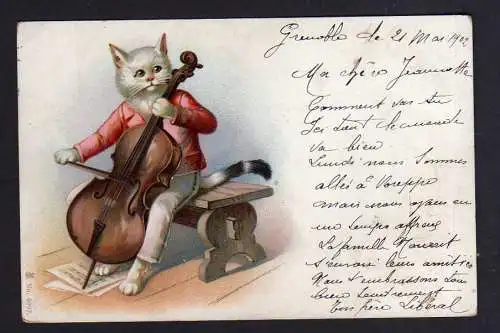 Grenoble le 21 Mai 1902
Ma chère Jeannette
Comment vas tu
Ici tout le monde
va bien
Lundi nous sommes
allés à Voreppe
mais nous avons eu
un temps affreux
La famille
t'envoi leurs amitiés
Nous t'embrassons tous
bien tendrement
Ton père Libéral